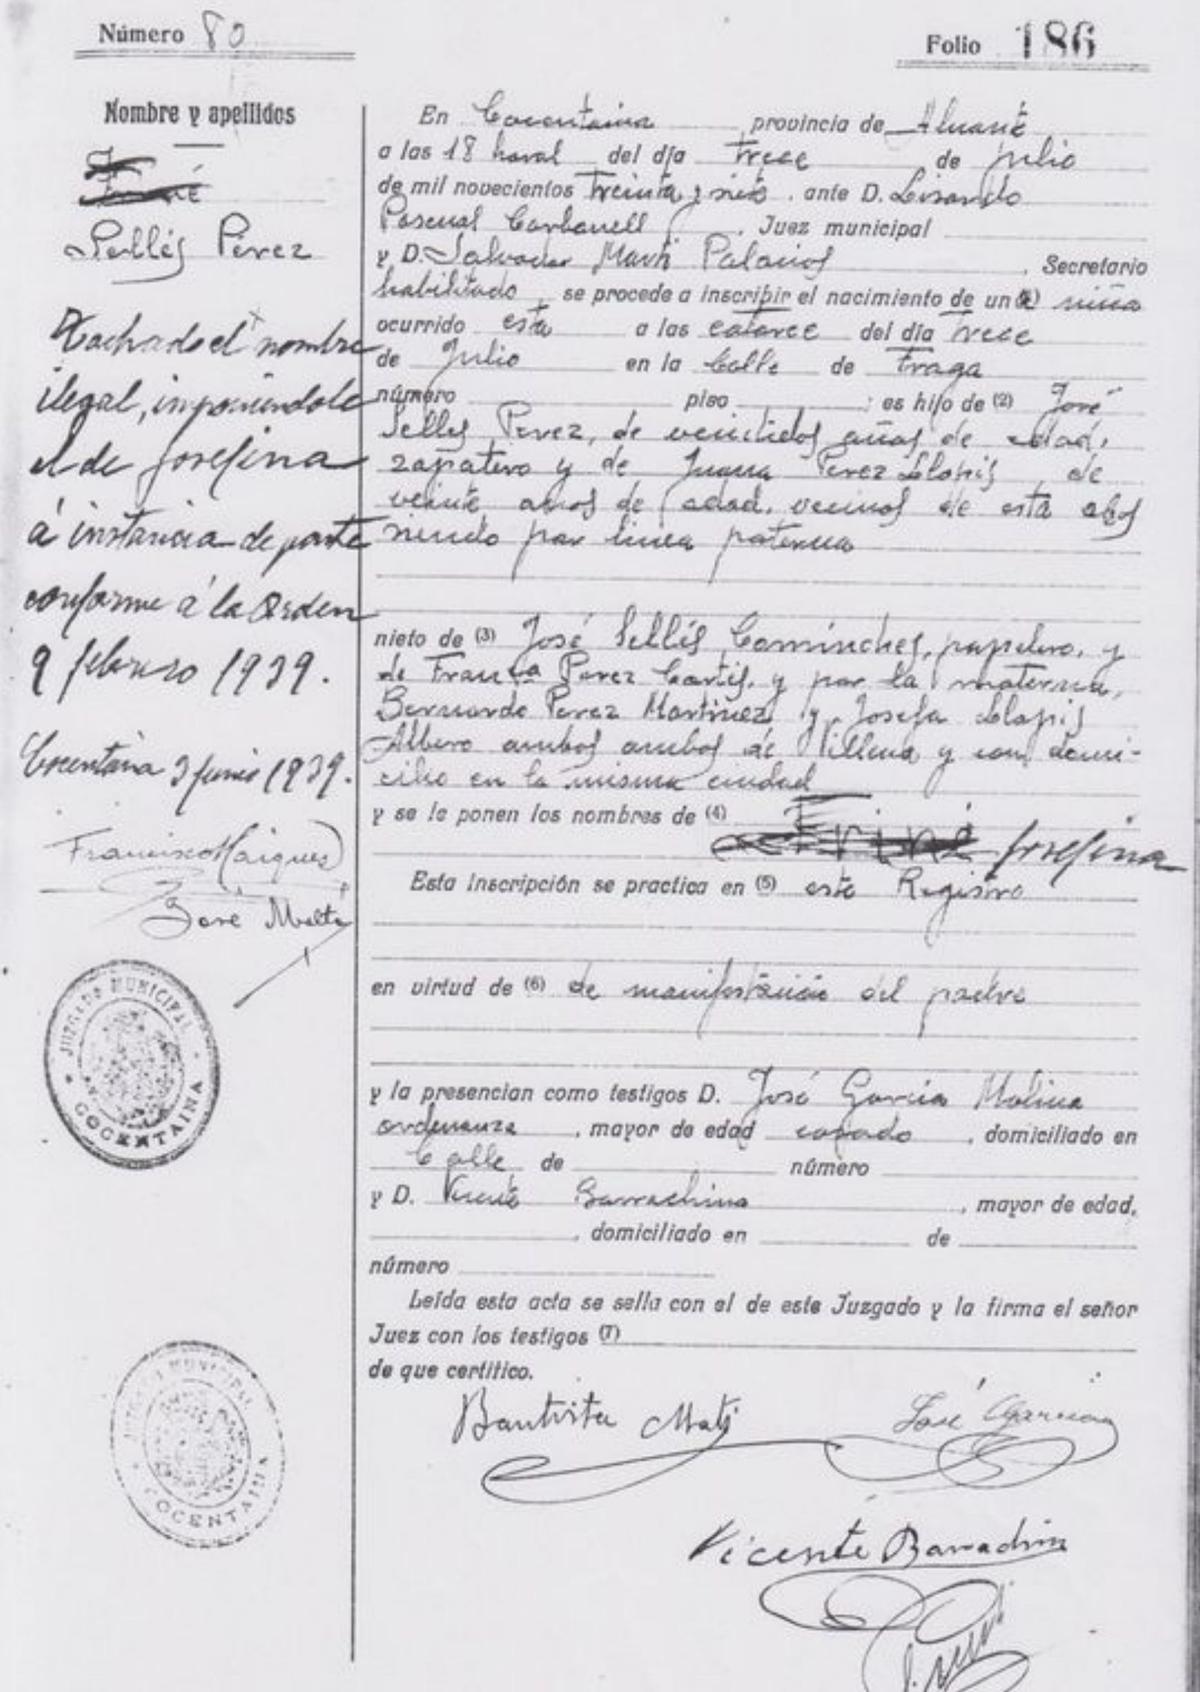 Número 80
Folio 186
Nombre y apellidos
Sellés Perez
Tachado el nombre
ilegal, imponiendole
el de Josefina
á instancia de parte
conforme á la Orden
9 febrero 1939.
Cocentaina 3 junio 1939.
Francisco
José Moltó
JUZGADO MUNICIPAL
COCENTAINA
JUZGADO MUNICIPAL
COCENTAINA
En Cocentaina provincia de Alicante
a las 18 horas del día trece de julio
de mil novecientos treinta y siete, ante D. Lisardo
Pascual Carbonell, Juez municipal
y D. Salvador Marti Palacios, Secretario
habilitado, se procede a inscribir el nacimiento de un (1) niña
ocurrido esta a las catorce del día trece
de Julio en la Calle de Fraga
número piso ; es hijo de (2) José
Selles Perez, de veintidos años de edad,
zapatero y de Juana Perez Llopis de
veinte años de edad, vecinos de esta
siendo por linea paterna
nieto de (3) José Sellés Cominches, papelero, y
de Fran.ca Perez, y por la materna,
Bernardo Perez Martinez y Josefa Llopis
Albero ambos ambos de Villena y con domi-
cilio en la misma ciudad
y se le ponen los nombres de (4)
Josefina
Esta inscripción se practica en (5) este Registro
en virtud de (6) de manifestación del padre
y la presencian como testigos D. José García Molina
ordenanza, mayor de edad casado, domiciliado en
Calle de número
y D. Vicente Barrachina, mayor de edad,
, domiciliado en de
número
Leída esta acta se sella con el de este Juzgado y la firma el señor
Juez con los testigos (7)
de que certifico.
Bautista José García
Vicente Barrachina